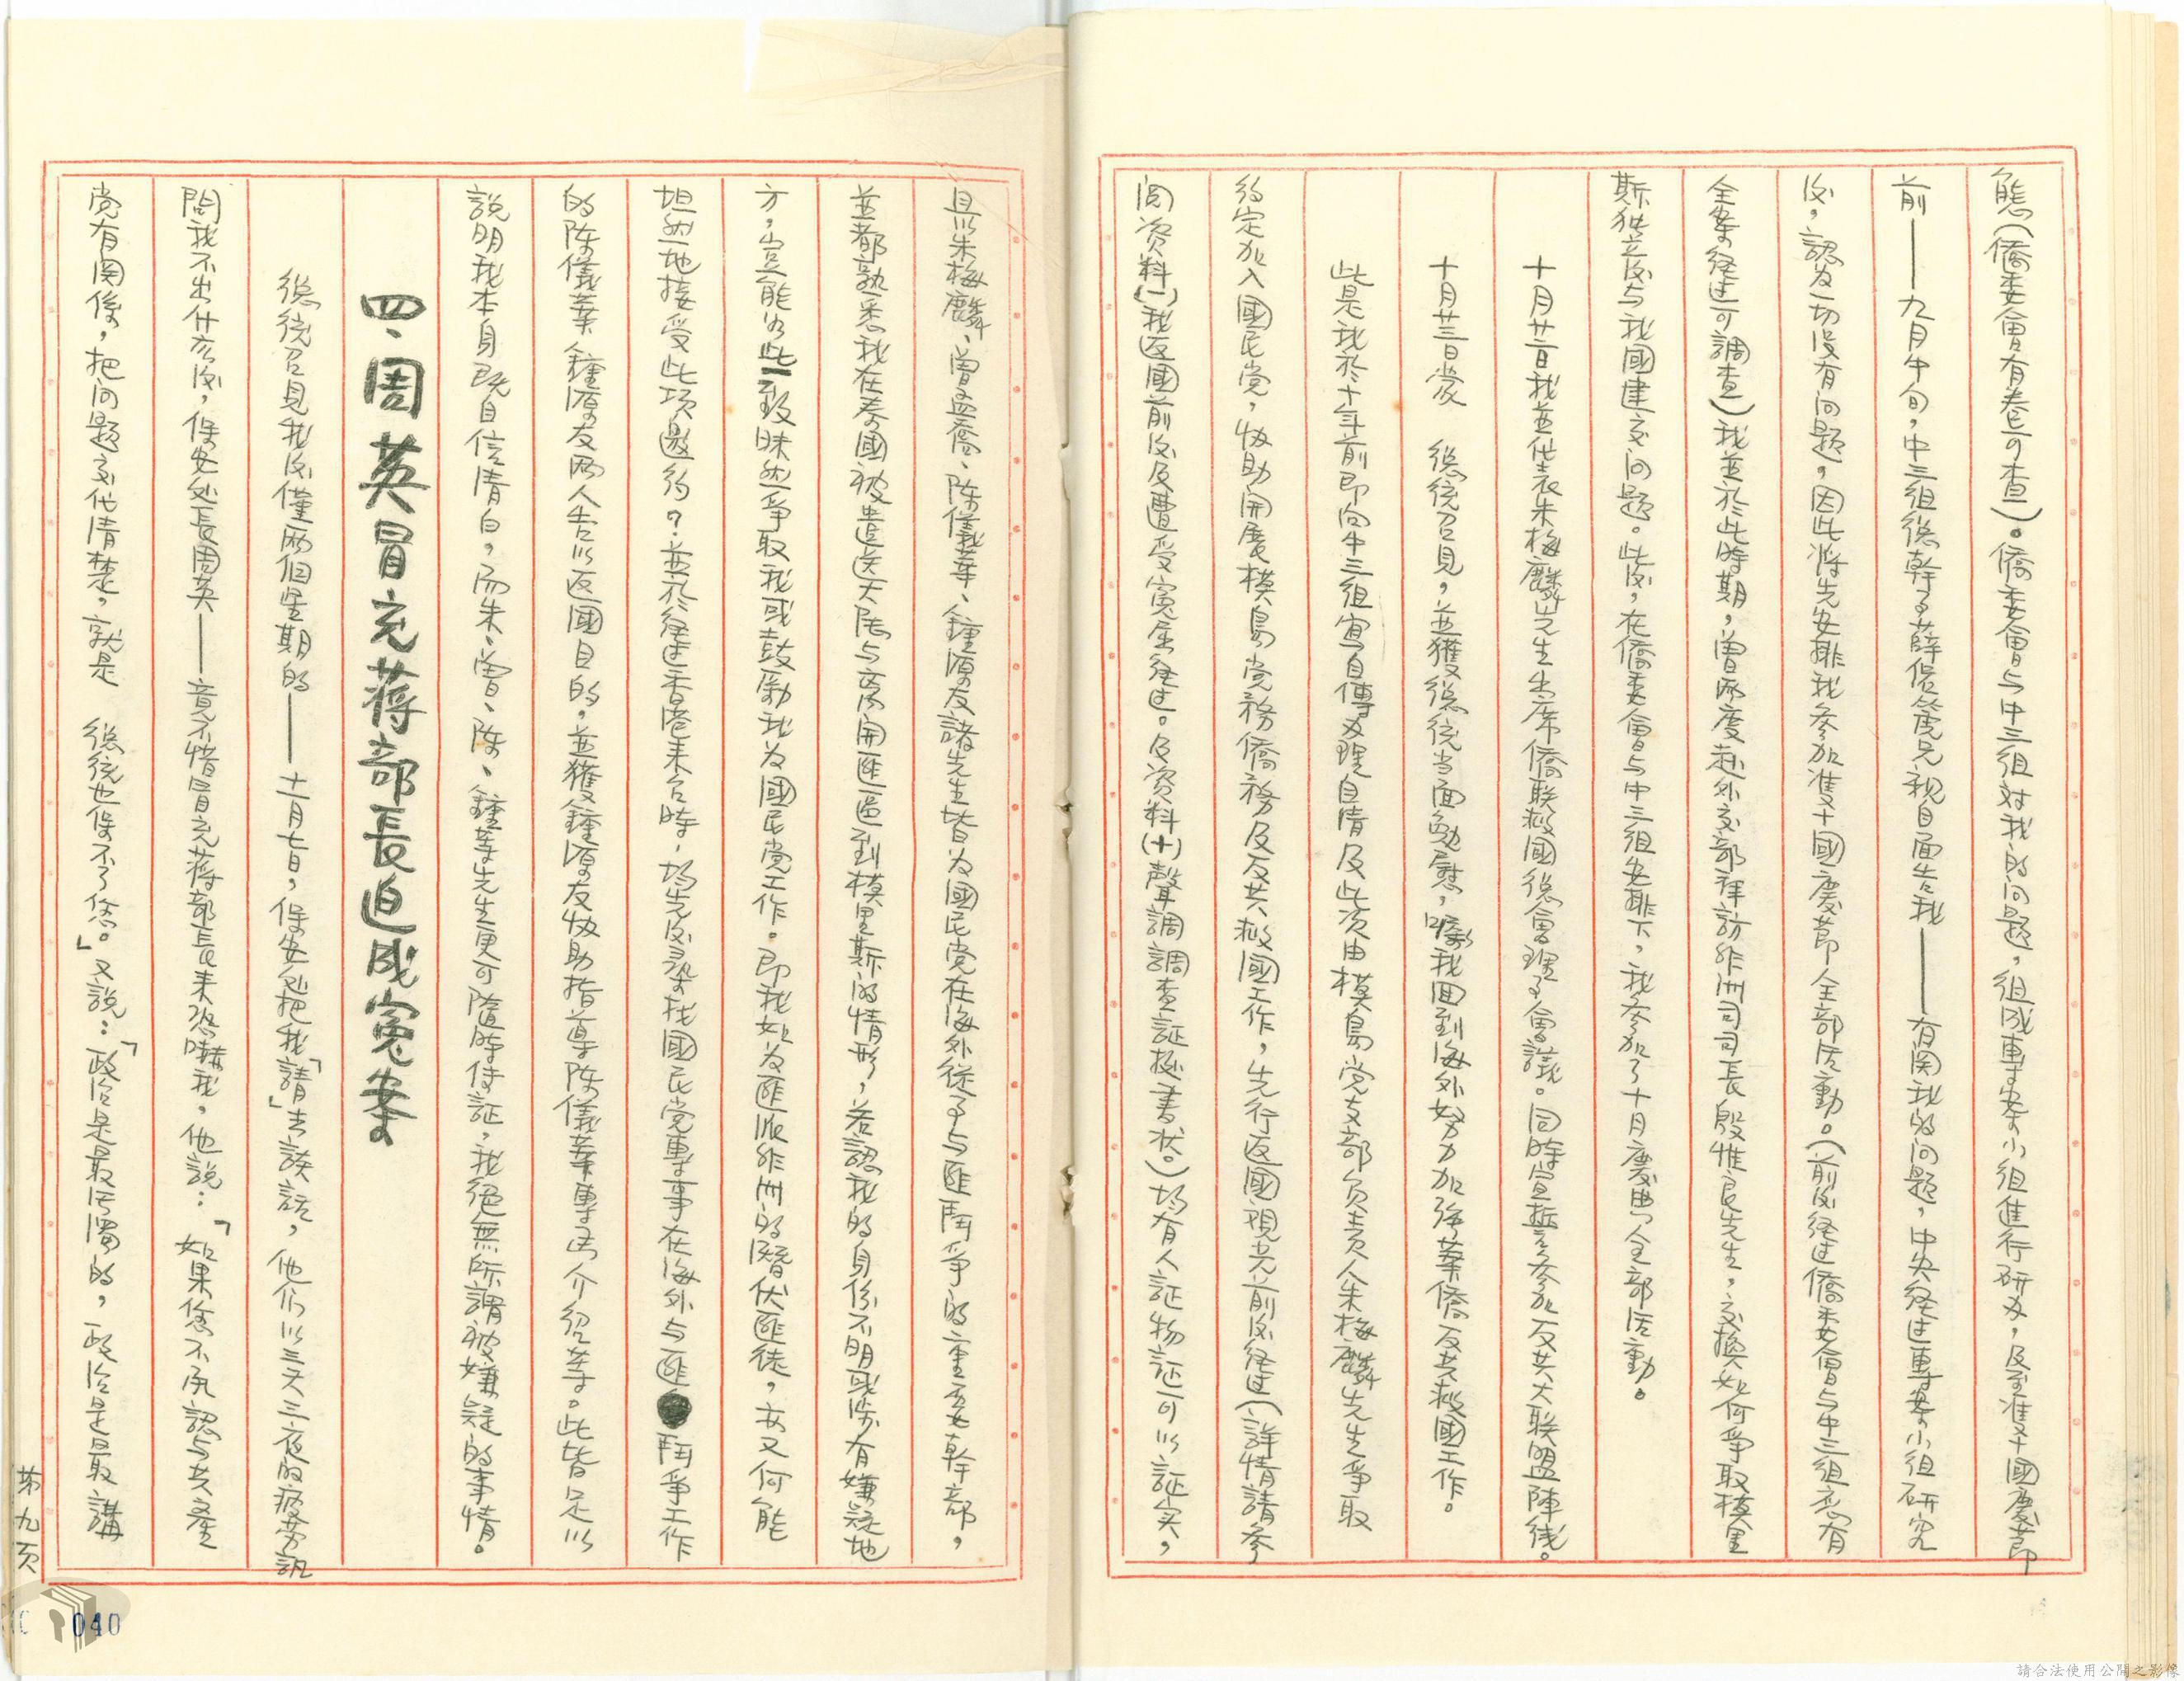 態(僑委會有卷可查)。僑委會与中三組対我的问题,组成專案小组進行研办,及至准双十國慶節
前——九月中旬,中三组總幹事薛保篤兄親自面告我——有関我的问题,中央经过專案小组研究
后,認为一切沒有问题,因此将先安排我参加准双十國慶節全部活動。(前后经过僑委會与中三组应有
全案经过可調查)我並於此時期,曾两度赴外交部拜訪非洲司司長殷惟良先生,交換如何爭取模里
斯独立后与我國建交问题。此后,在僑委會与中三组安排下,我参加了十月慶典全部活動。
十月廿一日我並代表朱梅麟先生出席僑联救國總會理事會議。同時宣誓参加反共大联盟陣线。
十月廿三日蒙 總統召見,並獲總統当面勉慰,囑我回到海外努力加強華僑反共救國工作。
此是我於十年前即向中三组寫自傳办理自清及此次由模島党支部负责人朱梅麟先生爭取
约定加入國民党,協助開展模島党務僑務及反共救國工作,先行返國覌光前后经过(詳情請参
阅资料(一)我返國前后及遭受寃屈经过。及资料(十)聲請調查証據書状。)均有人証物証可以証实,
且以朱梅麟、曾孟僑、陈儀華、鍾源友諸先生皆为國民党在海外從事与匪鬥爭的重要幹部,
並都熟悉我在泰國被遣送大陆与离開匪區到模里斯的情形,若認我的身份不明或涉有嫌疑地
方,豈能如此一致昧然爭取我或鼓勵我为國民党工作。即我如为匪派非洲的潛伏匪徒,亦又何能
坦然地接受此項邀约?並於经过香港来台時,均先后尋找國民党專事在海外与匪鬥爭工作
的陈儀華、鍾源友两人告以返國目的,並獲鍾源友協助指導陈儀華專函介绍等。此皆足以
說明我本身既自信清白,而朱、曾、陈、鍾等先生更可隨時侍証,我絕無所謂被嫌疑的事情。
四、周英冒充蒋部長迫成寃案
總統召見我后僅两個星期的——十一月七日,保安处把我「請」去談話,他们以三天三夜的疲劳訊
問我不出什么后,保安处長周英——竟不惜冒充蒋部長来恐嚇我,他說:「如果您不承認与共產
党有関係,把问题交代清楚,就是 總統也保不了您。」又說:「政治是最污濁的,政治是最講
第九页
040
請合法使用公開之影像